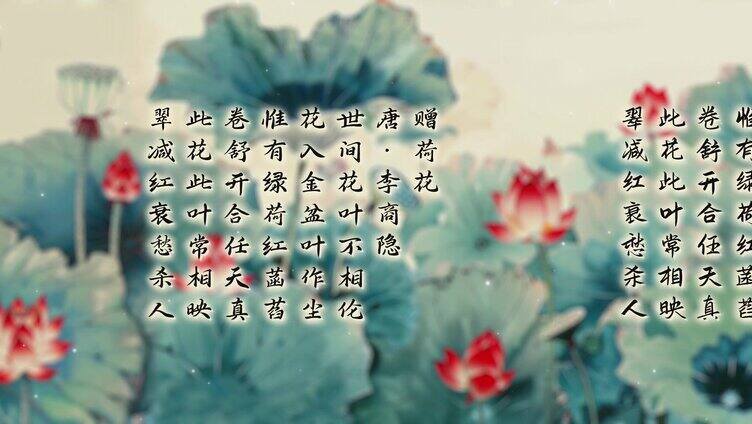 赠荷花
唐·李商隐
世间花叶不相伦
花入金盆叶作尘
惟有绿荷红菡萏
卷舒开合任天真
此花此叶常相映
翠减红衰愁杀人
惟有绿荷红菡萏
卷舒开合任天真
此花此叶常相映
翠减红衰愁杀人